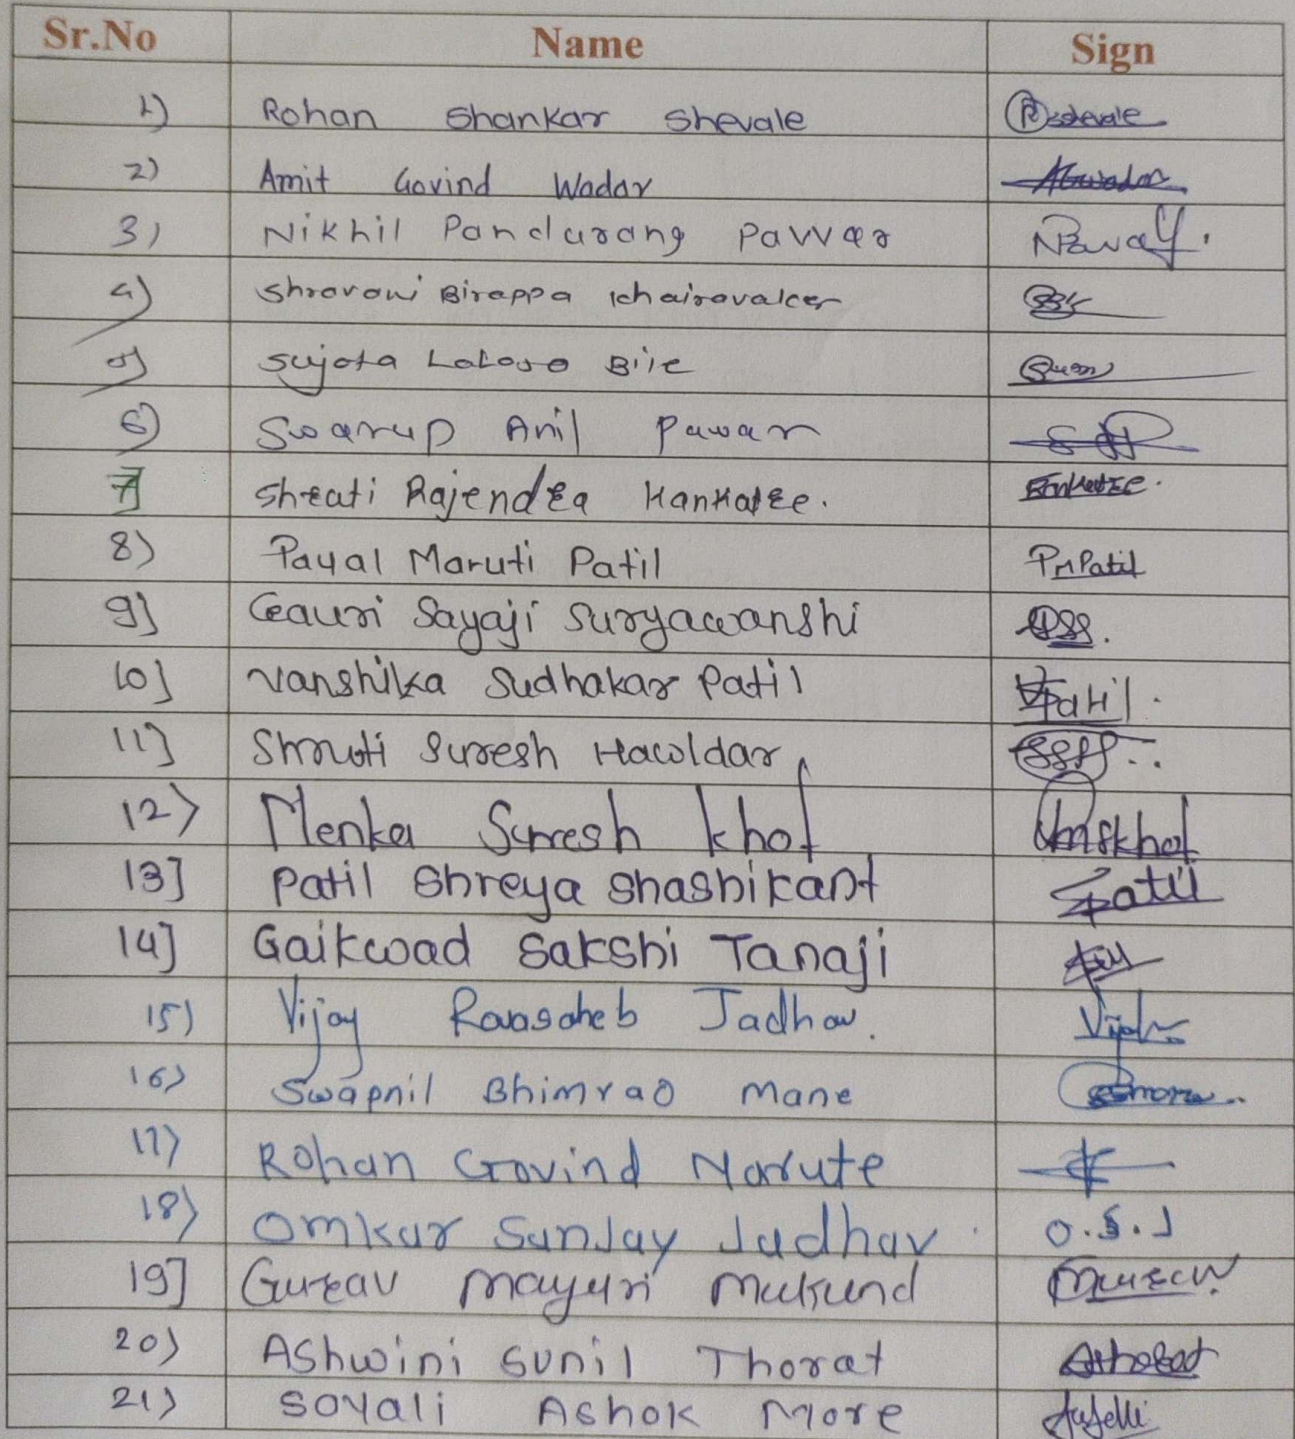 Sr.No Name Sign
1) Rohan Shankar Shevale Rsshevale
2) Amit Govind Wadar
3) Nikhil Pandurang Pawar
4) Shravani Birappa khairavakar SSK
5) Sujata Lataso Bile
6) Swarup Anil Pawar
7] Shruti Rajendra Hankare.
8) Payal Maruti Patil PMPatil
9] Gauri Sayaji Suryawanshi GSS.
10] Vanshika Sudhakar Patil VPatil.
11] Shruti Suresh Hawoldar
12) Menka Suresh khot Mskhot
13] Patil Shreya Shashikant SPatil
14] Gaikwad Sakshi Tanaji
15) Vijay Ravasaheb Jadhav.
16) Swapnil Bhimrao Mane
17) Rohan Govind Narute
18) Omkar Sanjay Jadhav O.S.J
19] Gurav Mayuri Mukund
20) Ashwini Sunil Thorat
21) Soyali Ashok More